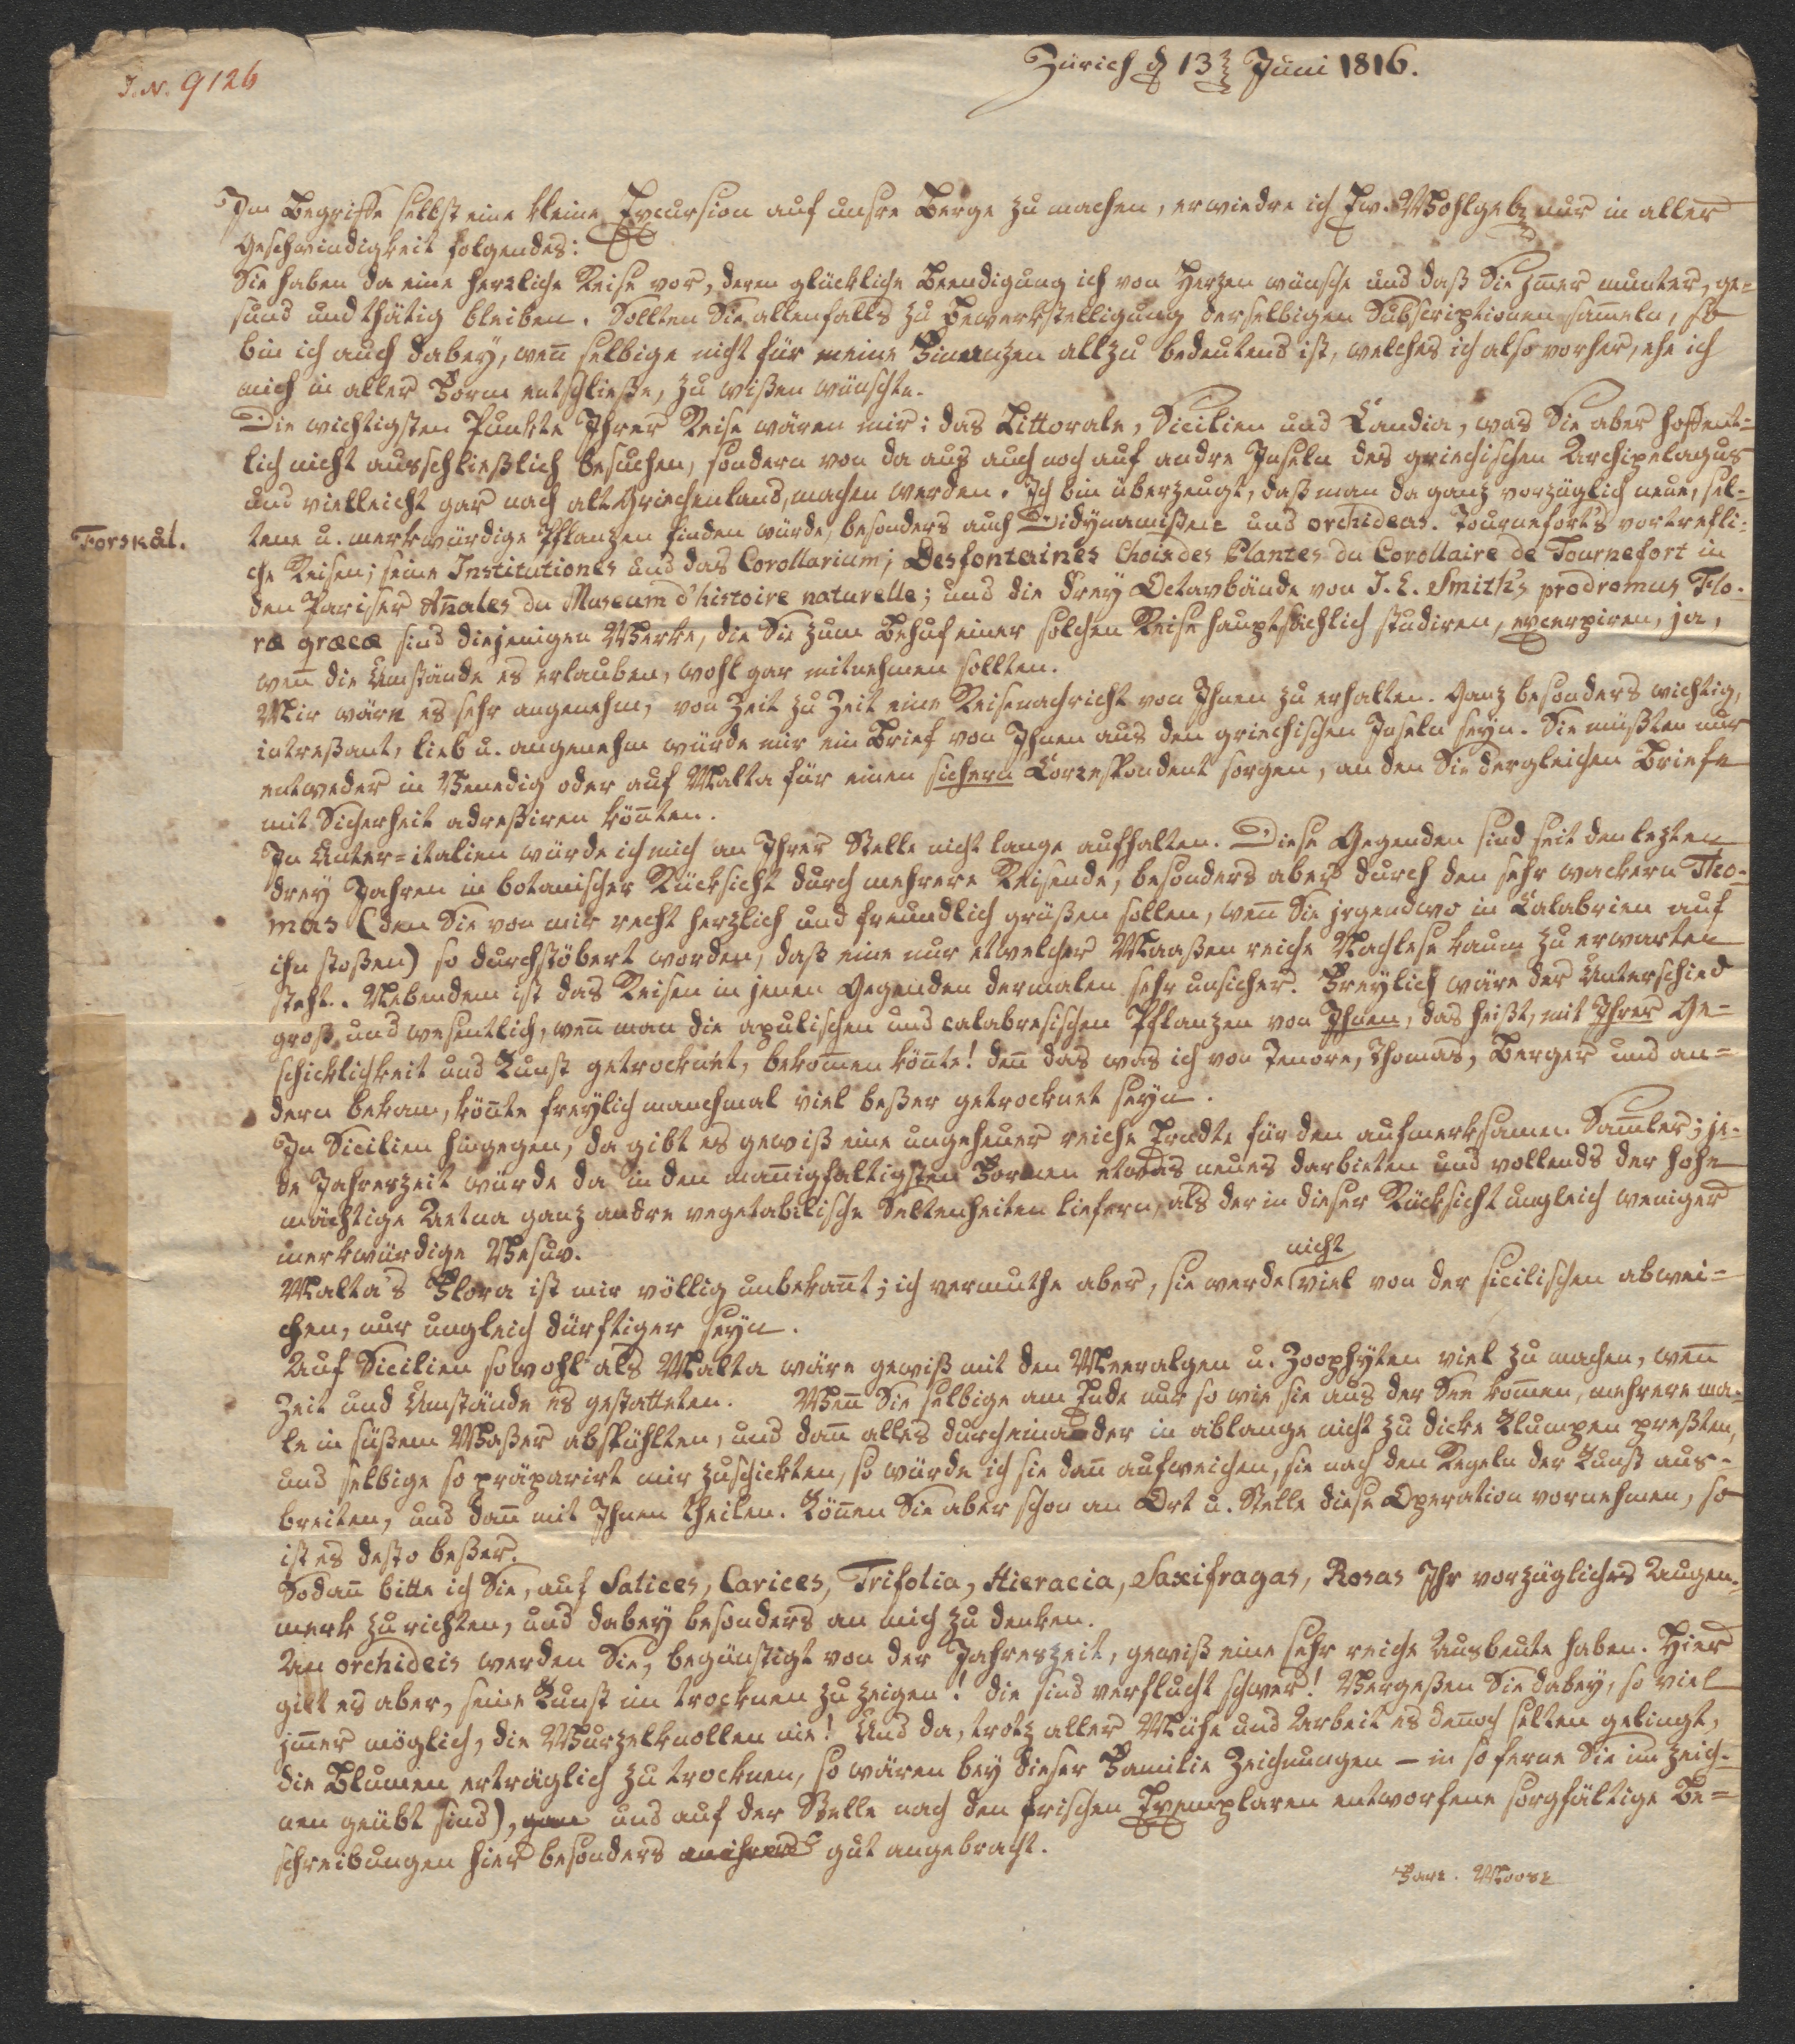 I. N. 9126
Zürich d 13 Juni 1816.
Im Begriffe selbst eine kleine Excursion auf unsre Berge zu machen, erwiedre ich Ew. Wohlgeb nur in aller
Geschwindigkeit folgendes:
Sie haben da eine herrliche Reise vor, deren glückliche Beendigung ich von Herzen wünsche und daß Sie im̄er munter, ge=
sund und thätig bleiben. Sollten Sie allenfalls zu Bewerkstelligung derselbigen Subscriptionen sam̄eln, so
bin ich auch dabeÿ, wen̄ selbige nicht für meine Finanzen allzu bedeutend ist, welches ich also vorher, ehe ich
mich in aller Form entschließe, zu wißen wünschte.
Die wichtigsten Punkte Ihrer Reise wären mir: das Littorale, Sicilien und Candia, was Sie aber hoffent=
lich nicht ausschließlich besuchen, sondern von da aus auch noch auf andre Inseln des griechischen Archipelagus
und vielleicht gar nach alt Griechenland, machen werden. Ich bin überzeugt, daß man da ganz vorzüglich neue, sel=
tene u. merkwürdige Pflanzen finden würde, besonders auch Didÿnamisten und orchideas. Tournefort's vortrefli=
Forskål.
che Reisen; seine Institutiones und das Corollarium; Desfontaines Choix des Plantes du Corollaire de Tournefort in
den Pariser An̄ales du Museum d'histoire naturelle; und die dreÿ Octavbände von J. E. Smith's prodromus Flo-
ræ græcæ sind diejenigen Werke, die Sie zum Behuf einer solchen Reise hauptsächlich studiren, excerpiren, ja,
wen̄ die Umstände es erlauben, wohl gar mitnehmen sollten.
Mir wäre es sehr angenehm, von Zeit zu Zeit eine Reisenachricht von Ihnen zu erhalten. Ganz besonders wichtig,
intreßant, lieb u. angenehm würde mir ein Brief von Ihnen aus den griechischen Inseln seÿn. Sie müßten nur
entweder in Venedig oder auf Malta für einen sichern Correspondent sorgen, an den Sie dergleichen Briefe
mit Sicherheit adreßiren kön̄ten.
In Unter=italien würde ich mich an Ihrer Stelle nicht lange aufhalten. Diese Gegenden sind seit den lezten
dreÿ Jahren in botanischer Rücksicht durch mehrere Reisende, besonders aber durch den sehr wackern Tho-
mas (den Sie von mir recht herzlich und freundlich grüßen sollen, wen̄ Sie irgendwo in Calabrien auf
ihn stoßen) so durchstöbert worden, daß eine nur etwelcher Maaßen reiche Nachlese kaum zu erwarten
steht. Nebendem ist das Reisen in jenen Gegenden dermalen sehr unsicher. Freÿlich wäre der Unterschied
groß und wesentlich, wen̄ man die apulischen und calabresischen Pflanzen von Ihnen, das heißt, mit Ihrer Ge=
schicklichkeit und Kunst getrocknet, bekom̄en kön̄te! den̄ das was ich von Tenore, Thomas, Berger und an=
dern bekam, kön̄te freÿlich manchmal viel beßer getrocknet seÿn.
In Sicilien hingegen, da gibt es gewiß eine ungeheuer reiche Erndte für den aufmerksamen Sam̄ler; je-
de Jahreszeit würde da in den man̄igfaltigsten Formen etwas neues darbieten und vollends der hohe
mächtige Aetna ganz andre vegetabilische Seltenheiten liefern, als der in dieser Rücksicht ungleich weniger
merkwürdige Vesuv.
Malta's Flora ist mir völlig unbekan̄t; ich vermuthe aber, sie werde nicht viel von der sicilischen abwei=
chen, nur ungleich dürftiger seÿn.
Auf Sicilien sowohl als Malta wäre gewiß mit den Meeralgen u. Zoophÿten viel zu machen, wen̄
Zeit und Umstände es gestatteten. Wen̄ Sie selbige am Ende nur so wie sie aus der See kom̄en, mehrere ma-
le in süßem Waßer abspühlten, und dan̄ alles durcheinander in ablange nicht zu dicke Klumpen preßten,
und selbige so präparirt mir zuschickten, so würde ich sie dan̄ aufweichen, sie nach den Regeln der Kunst aus-
breiten, und dan̄ mit Ihnen theilen. Kön̄en Sie aber schon an Ort u. Stelle diese Operation vornehmen, so
ist es desto beßer.
Sodan̄ bitte ich Sie, auf Salices, Carices, Trifolia, Hieracia, Saxifragas, Rosas Ihr vorzügliches Augen-
merk zu richten, und dabeÿ besonders an mich zu denken.
An orchideis werden Sie, begünstigt von der Jahreszeit, gewiß eine sehr reiche Ausbeute haben. Hier
gilt es aber, seine Kunst im trocknen zu zeigen! die sind verflucht schwer! Vergeßen Sie dabeÿ, so viel
im̄er möglich, die Wurzelknollen nie! Und da, trotz aller Mühe und Arbeit es den̄och selten gelingt,
die Blumen erträglich zu trocknen, so wären beÿ dieser Familie Zeichnungen – in so ferne Sie im zeich-
nen geübt sind), und auf der Stelle nach den frischen Exemplaren entworfene sorgfältige Be=
schreibungen hier besonders gut angebracht.
Farr. Moose